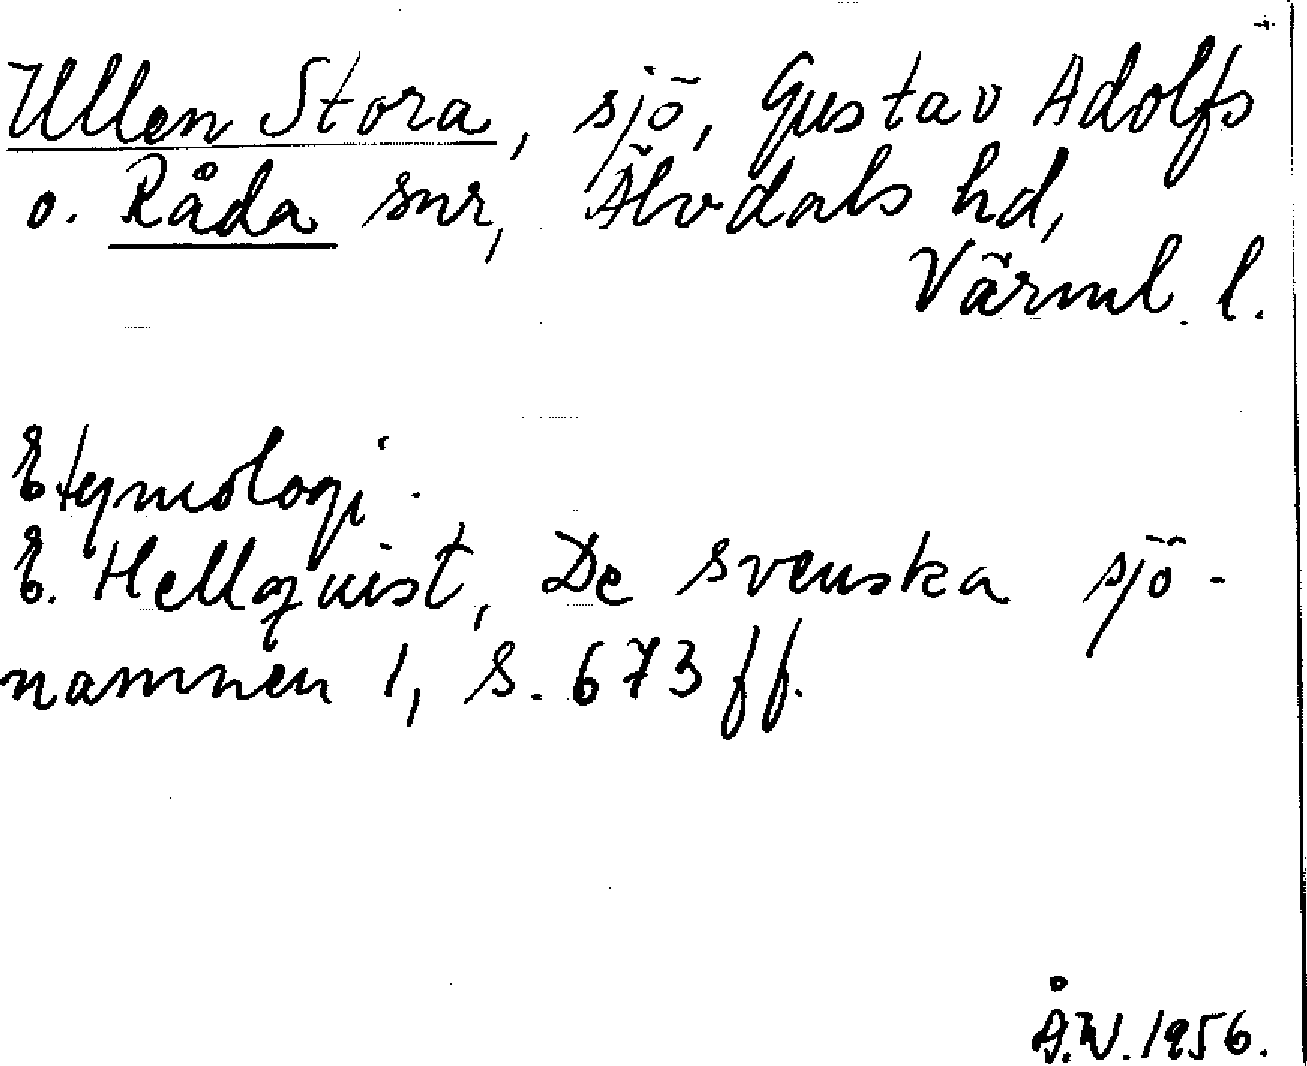 Ullen Stora, sjö, Gustav Adolfs
o. Råda snr, Älvdals hd,
Värml. l.
Etymologi.
E. Hellquist, De svenska sjö-
namnen 1, s. 673 ff.
Å.W. 1956.